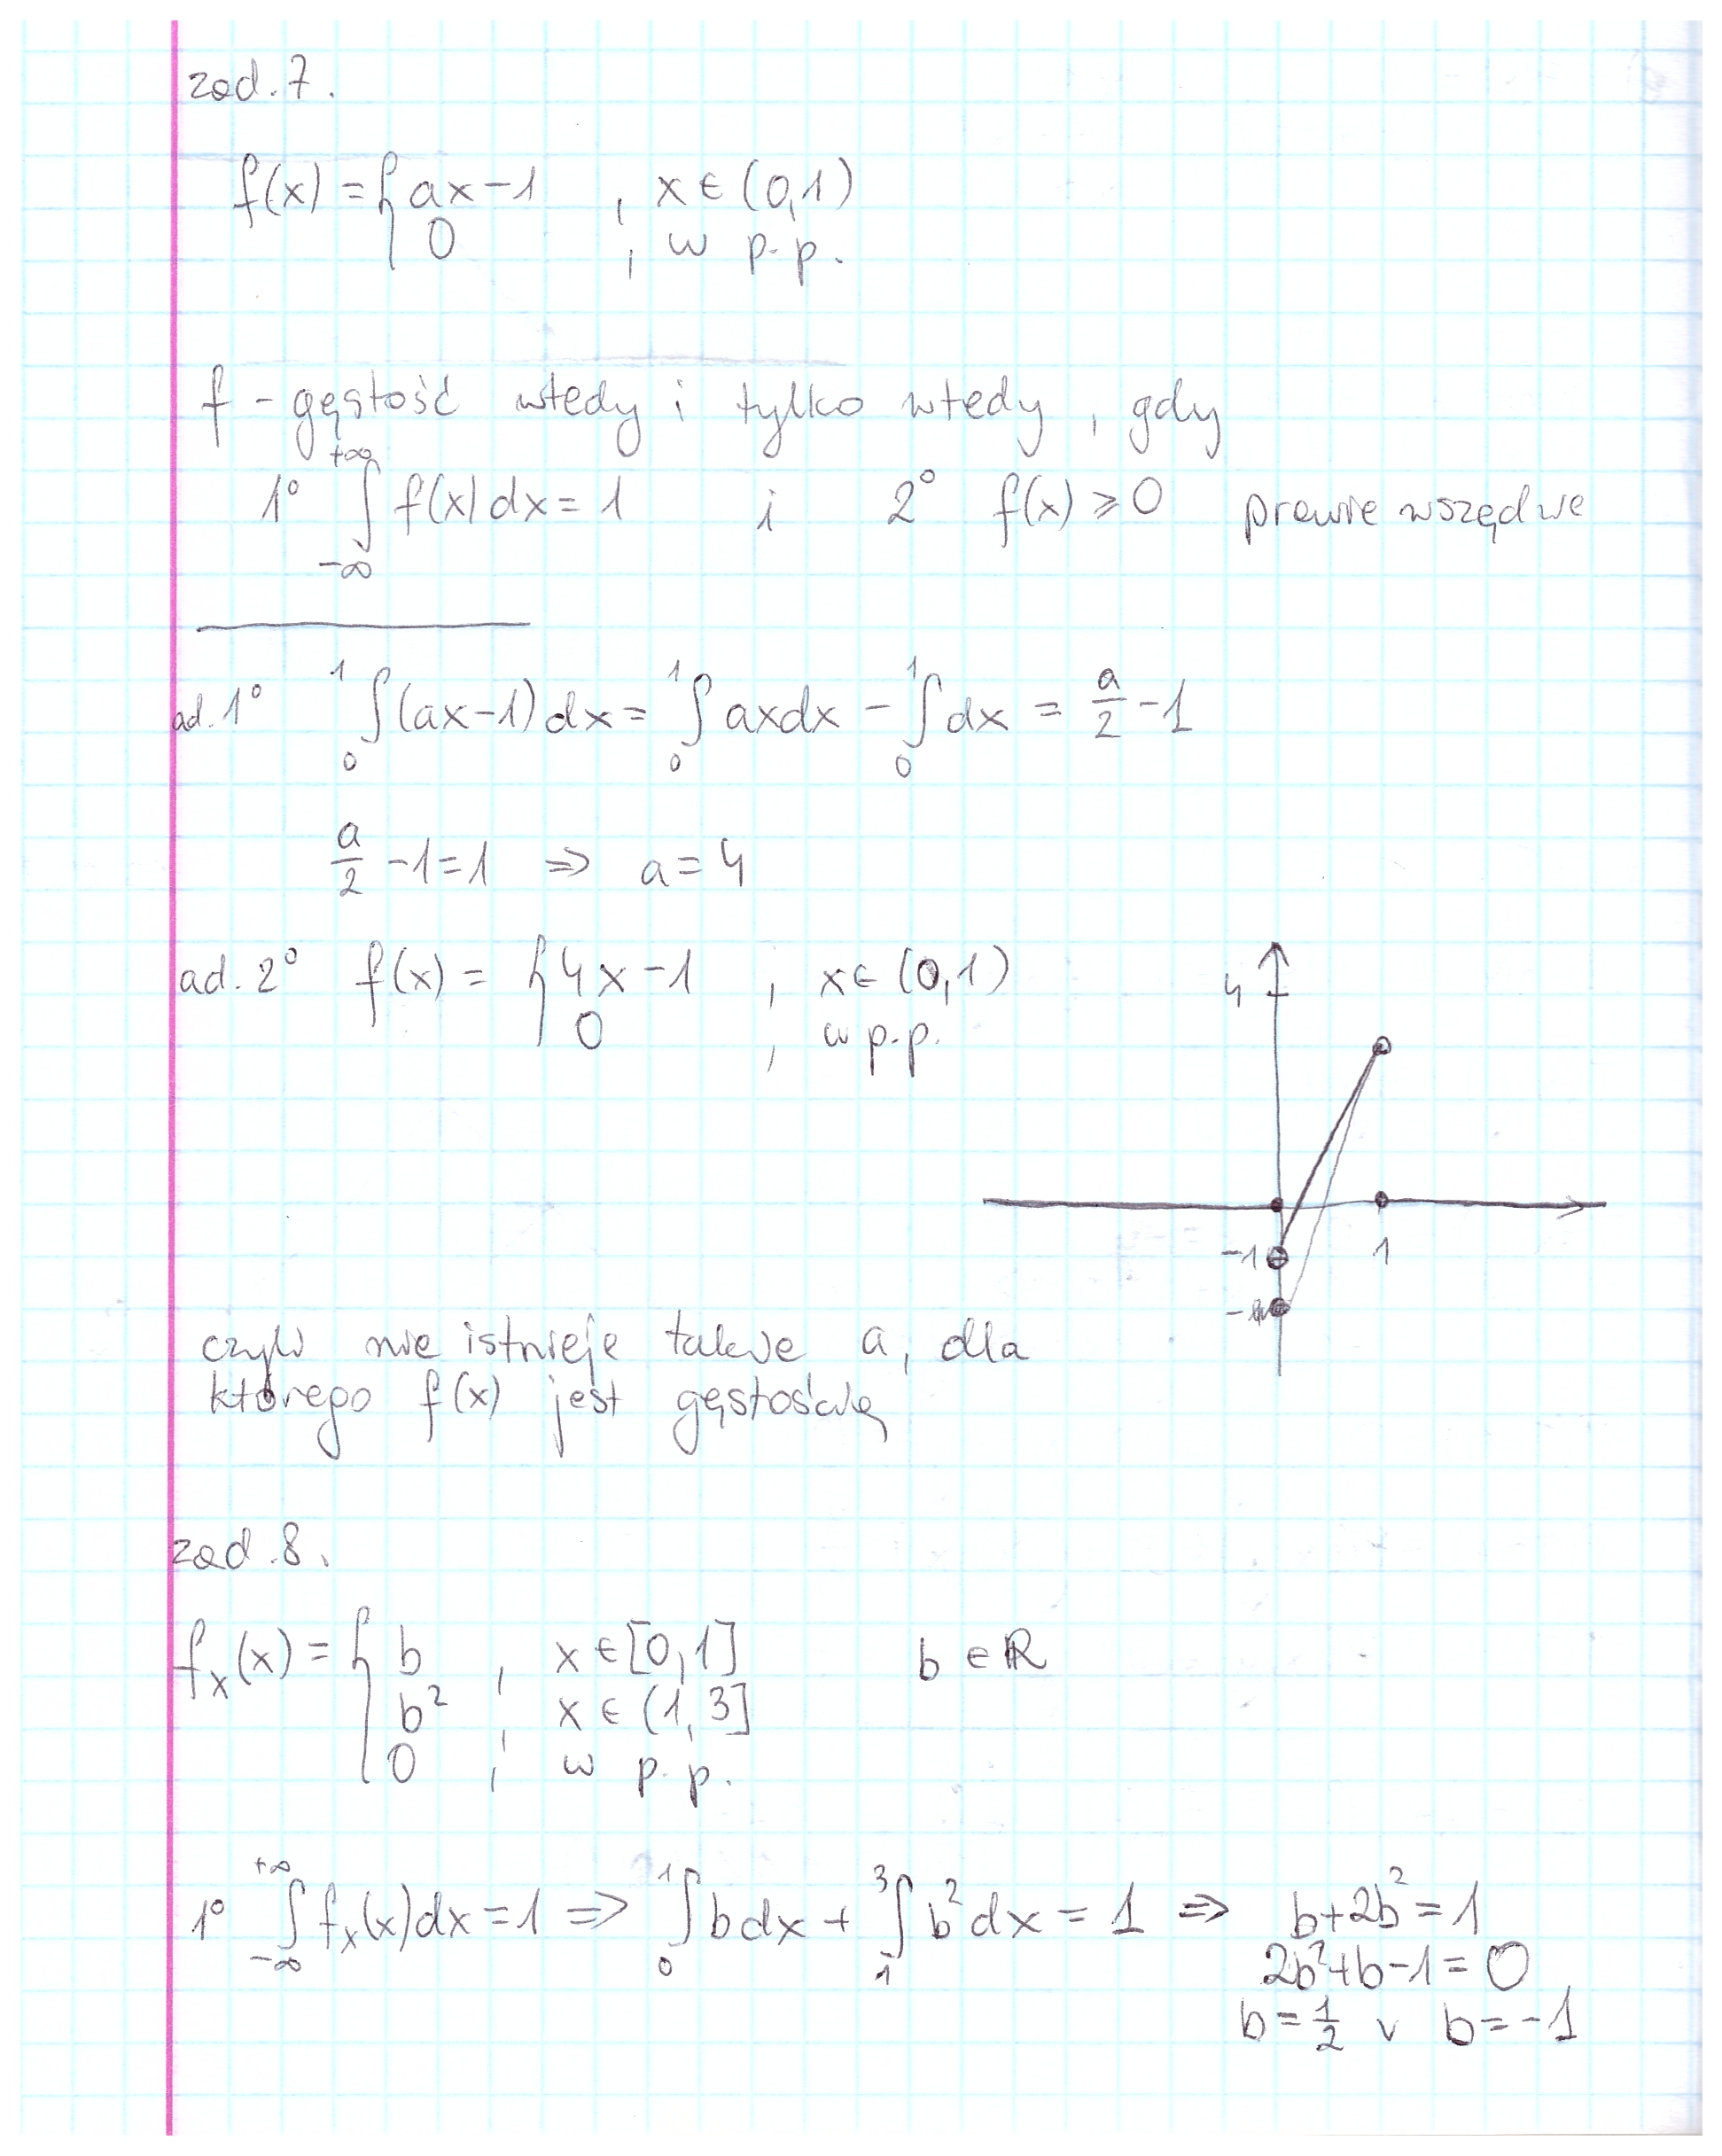 zad. 7.
f(x) = { ax-1 , x ∈ (0,1)
0 , w p.p.
f - gęstość wtedy i tylko wtedy, gdy
1° ∫_{-∞}^{+∞} f(x) dx = 1 i 2° f(x) ⩾ 0 prawie wszędzie
ad. 1° ∫_0^1 (ax-1) dx = ∫_0^1 axdx - ∫_0^1 dx = a/2 - 1
a/2 - 1 = 1 ⇒ a = 4
ad. 2° f(x) = { 4x-1 , x ∈ (0,1)
0 , w p.p.
4
-1
1
czyli nie istnieje takie a, dla
którego f(x) jest gęstością
zad. 8.
f_x(x) = { b , x ∈ [0,1] b ∈ ℝ
b² , x ∈ (1,3]
0 , w p.p.
1° ∫_{-∞}^{+∞} f_x(x)dx = 1 ⇒ ∫_0^1 bdx + ∫_1^3 b²dx = 1 ⇒ b+2b² = 1
2b²+b-1 = 0
b = 1/2 v b = -1